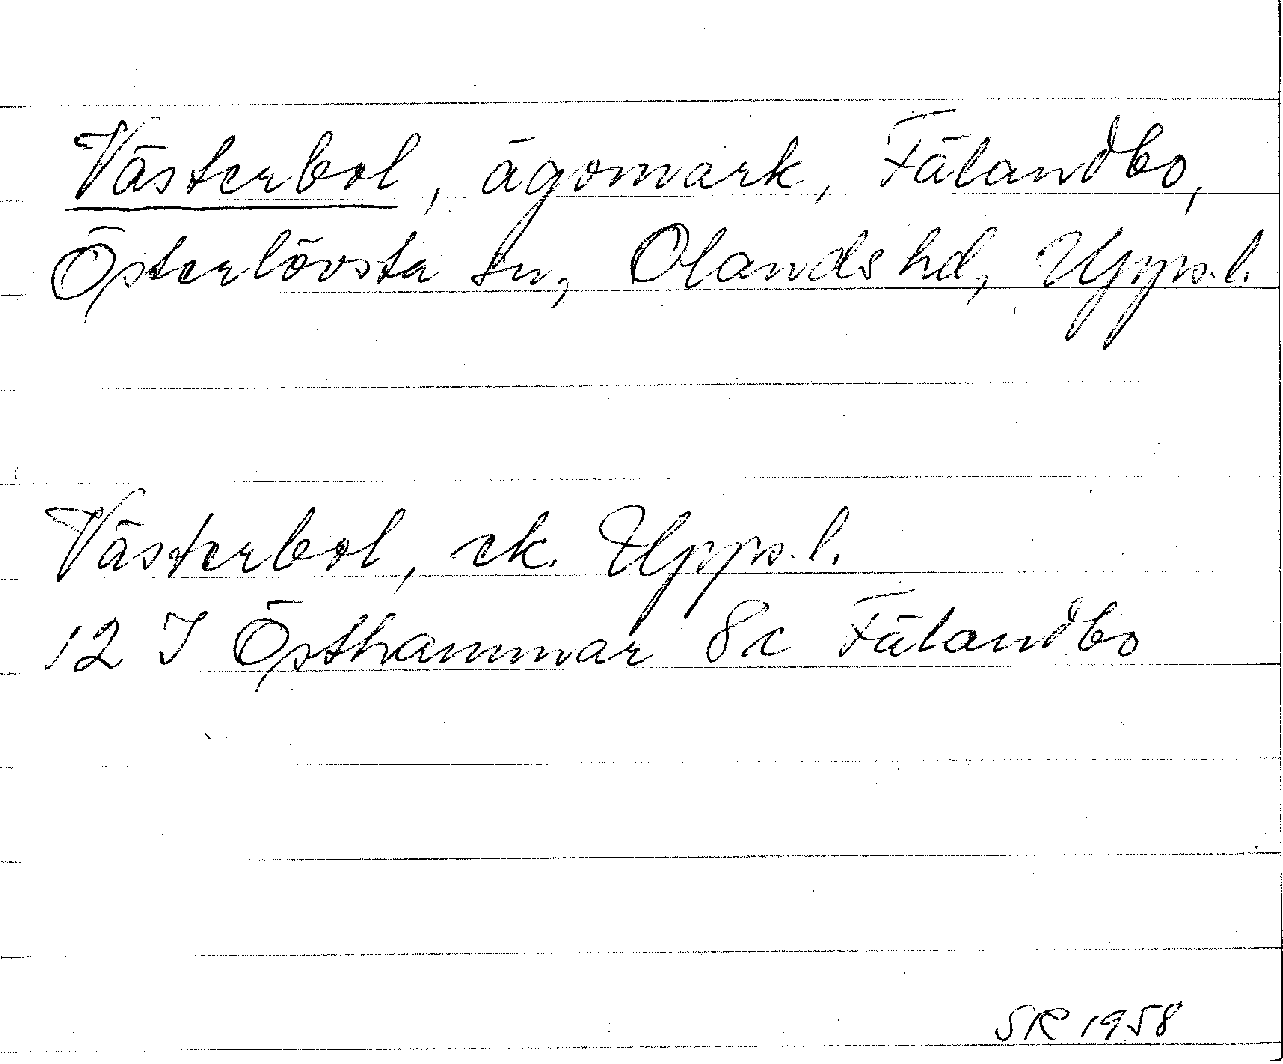 Västerbol, ägomark, Fälandbo,
Österlövsta sn, Olands hd, Upps. l.
Västerbol, ek. Upps. l.
12 I Östhammar 8c Fälandbo
SR 1958